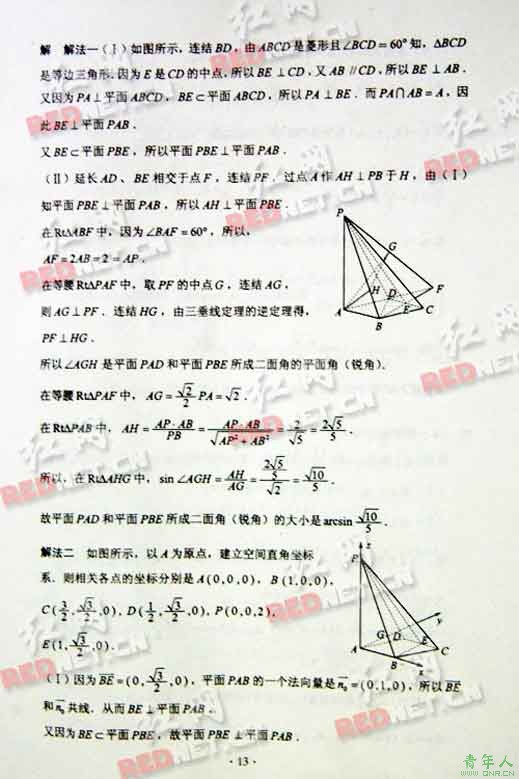 解 解法一(Ⅰ)如图所示,连结BD,由ABCD是菱形且∠BCD=60°知,△BCD
是等边三角形.因为E是CD的中点,所以BE⊥CD,又AB∥CD,所以BE⊥AB.
又因为PA⊥平面ABCD,BE⊂平面ABCD,所以PA⊥BE.而PA∩AB=A,因
此BE⊥平面PAB.
又BE⊂平面PBE,所以平面PBE⊥平面PAB.
(Ⅱ)延长AD、BE相交于点F,连结PF.过点A作AH⊥PB于H,由(Ⅰ)
知平面PBE⊥平面PAB,所以AH⊥平面PBE.
在Rt△ABF中,因为∠BAF=60°,所以,
AF=2AB=2=AP.
在等腰Rt△PAF中,取PF的中点G,连结AG,
则AG⊥PF.连结HG,由三垂线定理的逆定理得,
PF⊥HG.
P
G
H D F
A B E C
所以∠AGH是平面PAD和平面PBE所成二面角的平面角(锐角).
在等腰Rt△PAF中,AG=√2/2 PA=√2.
在Rt△PAB中,AH=AP·AB/PB=AP·AB/√(AP²+AB²)=2/√5=2√5/5.
所以,在Rt△AHG中,sin∠AGH=AH/AG=(2√5/5)/√2=√10/5.
故平面PAD和平面PBE所成二面角(锐角)的大小是arcsin √10/5.
解法二 如图所示,以A为原点,建立空间直角坐标
系.则相关各点的坐标分别是A(0,0,0),B(1,0,0),
C(3/2,√3/2,0),D(1/2,√3/2,0),P(0,0,2),
E(1,√3/2,0).
z
P
y
G D E
A B C
x
(Ⅰ)因为BE=(0,√3/2,0),平面PAB的一个法向量是n₀=(0,1,0),所以BE
和n₀共线.从而BE⊥平面PAB.
又因为BE⊂平面PBE,故平面PBE⊥平面PAB.
·13·
红网
REDNET.CN
青年人
QNR.CN